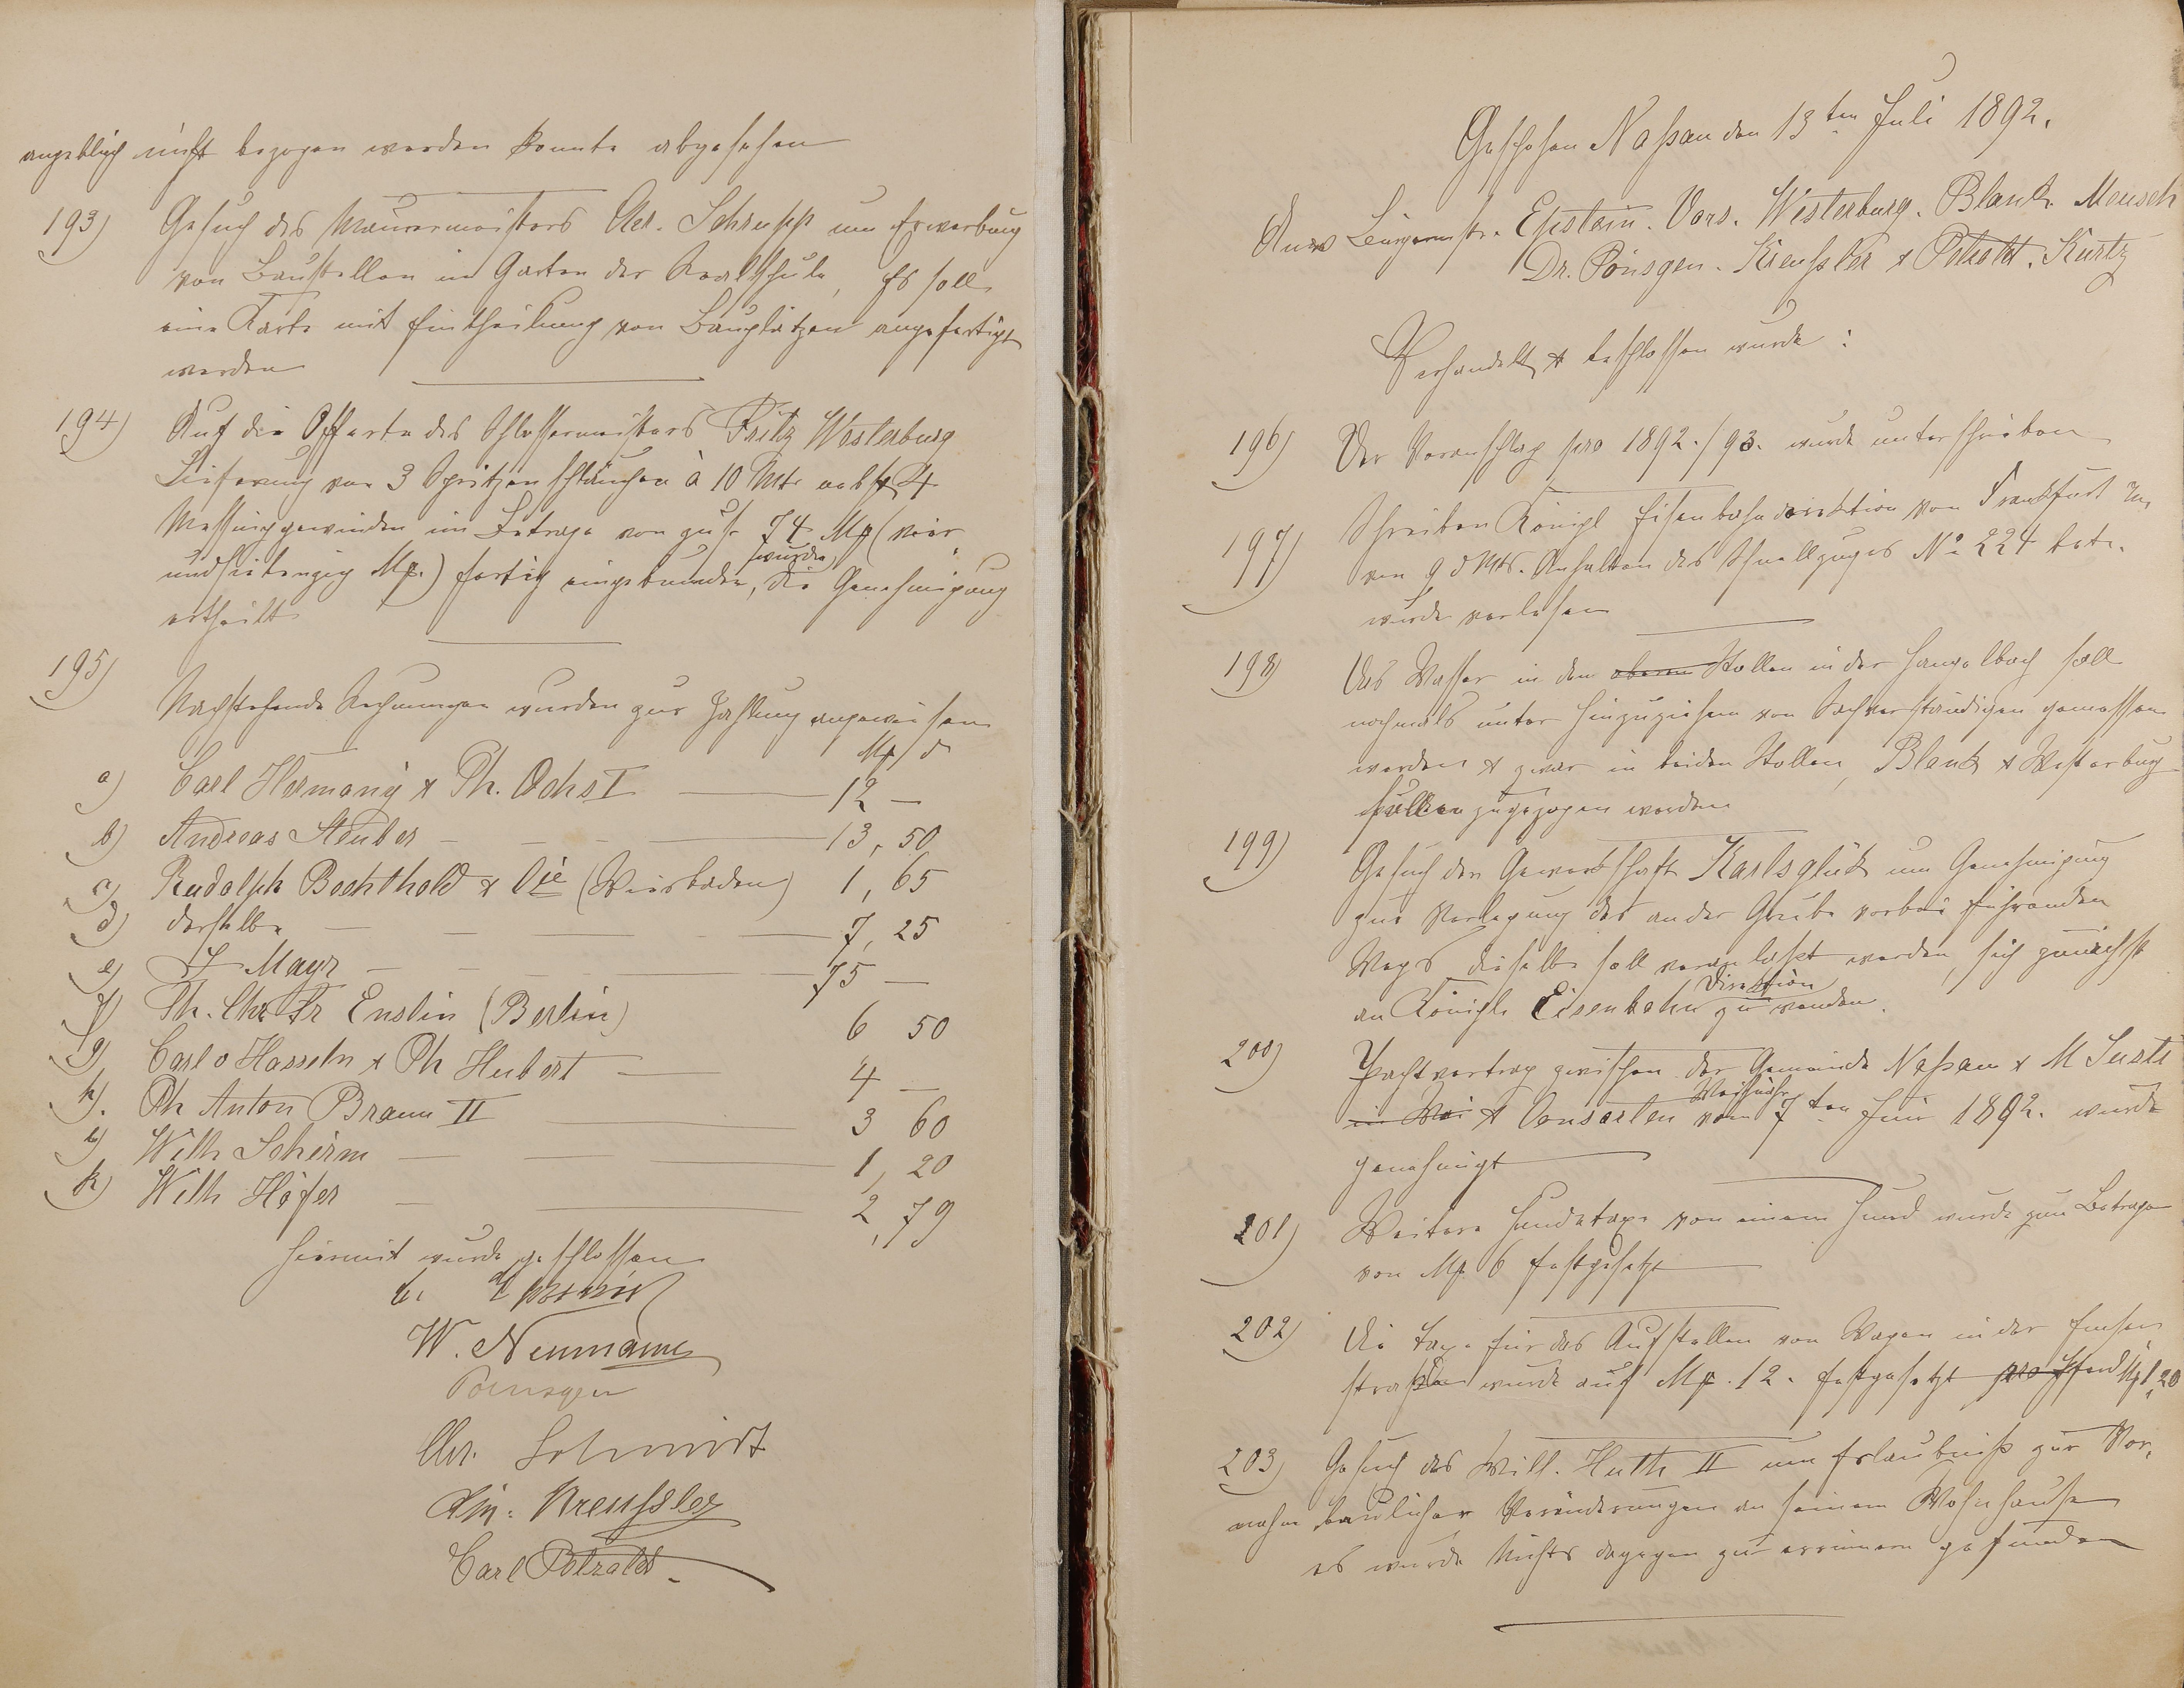 angeblich nicht bezogen werden konnte abgesehen
193) Gesuch des Maurermeisters Chr. Schrupp um Erwerbung
von Baustellen im Garten der Realschule, Es soll
eine Karte mit Eintheilung von Bauplätzen angefertigt
werden
194) Auf die Offerte des Schlossermeisters Fritz Westerburg
Lieferung von 3 Spritzenschläuchen à 10 Mtr nebst 4
Messinggewinden im Betrage von zus. 74 Mk (vier
undsiebenzig Mk.) fertig eingebunden, wurde die Genehmigung
ertheilt
195) Nachstehende Rechnungen wurden zur Zahlung angewiesen
Mk d
a) Carl Hermany & Ph. Ochs I 12 —
b) Andreas Steuber 13, 50
c) Rudolph Bechthold & Cie (Wiesbaden) 1, 65
d) derselbe 7, 25
e) J Mayr 75 —
f) Th. Chr Fr Enslin (Berlin) 6 50
g) Carl v Hasseln & Ph Hubert 4 —
h). Ph Anton Braun II 3 60
i) Wilh Schirm 1, 20
k) Wilh Höfer 2, 79
Hiermit wurde geschlossen
W. Neumann
Poensgen
Chr. Schmidt
Kreussler
Carl Potzaldt
Geschehen Naßau den 13ten Juli 1892.
Anw Bürgermstr. Epstein. Vors. Westerburg. Blank. Meusch
Dr. Pönsgen. Kreussler & Potzaldt. Kurtz
Verhandelt & beschlossen wurde:
196) Der Voranschlag pro 1892./93. wurde unterschrieben
197) Schreiben Königl Eisenbahndirektion von Frankfurt a/M
vom 9 d Mts. Anhalten des Schnellzuges No 224 betr.
wurde verlesen
198) Das Wasser in dem oberen Stollen in der Hangelbach soll
nochmals unter Hinzuziehen von Sachverständigen gemessen
werden & zwar in beiden Stollen, Blank & Westerburg
sollen zugezogen werden
199) Gesuch der Gewerkschaft Karlsglück um Genehmigung
zur Verlegung des an der Grube vorbei führenden
Wegs dieselbe soll veranlaßt werden, sich zunächst
an Königle Eisenbahn Direktion zu wenden.
200) Pachtvertrag zwischen der Gemeinde Naßau & M Justi
& Consorten vom 7ten Juni 1892. wurde
genehmigt
201) Weitere Hundetaxe von einem Hund wurde zum Betrage
von Mk 6 festgesetzt
202) Die Taxe für das Aufstellen von Wagen in der Emser
straße wurde auf Mk. 12. festgesetzt pro Pferd Mk 1,20
203) Gesuch des Wilh. Huth II um Erlaubniß zur Vor,
nahme baulicher Veränderungen an seinem Wohnhause
es wurde Nichts dagegen zu erinnern gefunden